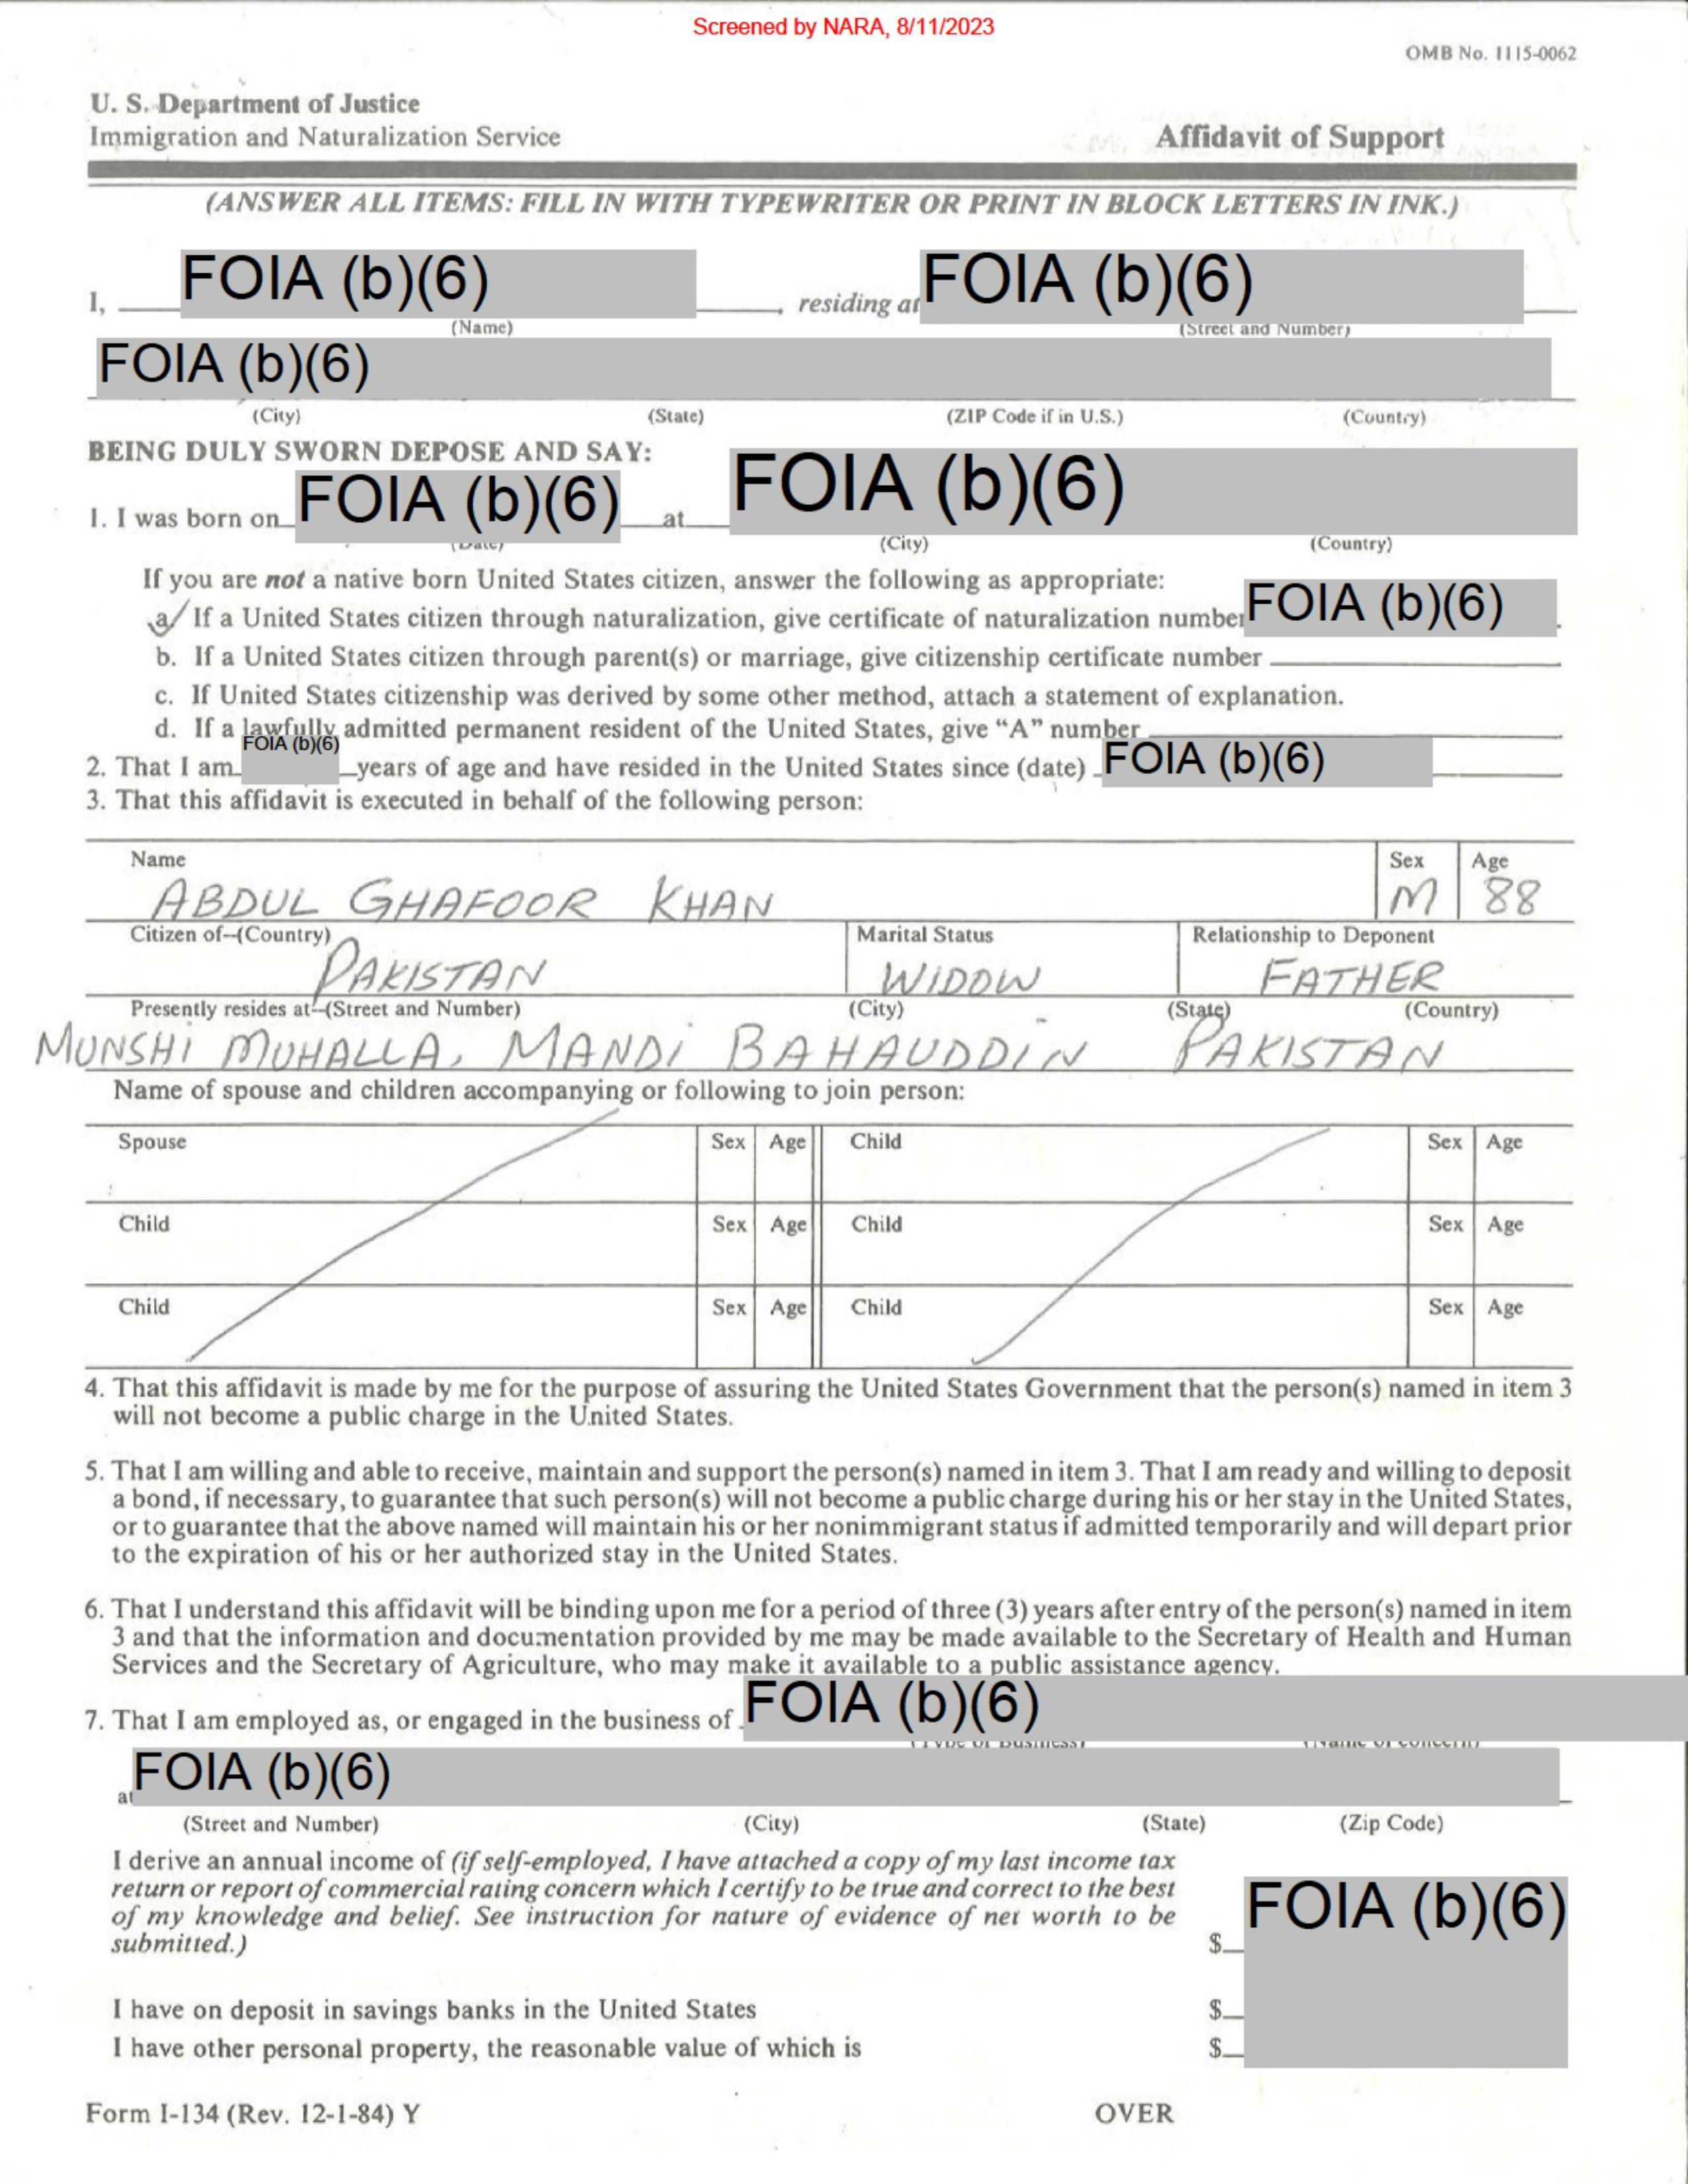 Screened by NARA, 8/11/2023
OMB No. 1115-0062
U. S. Department of Justice
Immigration and Naturalization Service
Affidavit of Support
(ANSWER ALL ITEMS: FILL IN WITH TYPEWRITER OR PRINT IN BLOCK LETTERS IN INK.)
I, FOIA (b)(6) , residing at FOIA (b)(6)
(Name) (Street and Number)
FOIA (b)(6)
(City) (State) (ZIP Code if in U.S.) (Country)
BEING DULY SWORN DEPOSE AND SAY:
1. I was born on FOIA (b)(6) at FOIA (b)(6)
(Date) (City) (Country)
If you are not a native born United States citizen, answer the following as appropriate:
a. If a United States citizen through naturalization, give certificate of naturalization number FOIA (b)(6) .
b. If a United States citizen through parent(s) or marriage, give citizenship certificate number
c. If United States citizenship was derived by some other method, attach a statement of explanation.
d. If a lawfully admitted permanent resident of the United States, give “A” number
2. That I am FOIA (b)(6) years of age and have resided in the United States since (date) FOIA (b)(6)
3. That this affidavit is executed in behalf of the following person:
Name Sex Age
ABDUL GHAFOOR KHAN M 88
Citizen of--(Country) Marital Status Relationship to Deponent
PAKISTAN WIDOW FATHER
Presently resides at--(Street and Number) (City) (State) (Country)
MUNSHI MUHALLA, MANDI BAHAUDDIN PAKISTAN
Name of spouse and children accompanying or following to join person:
Spouse Sex Age Child Sex Age
Child Sex Age Child Sex Age
Child Sex Age Child Sex Age
4. That this affidavit is made by me for the purpose of assuring the United States Government that the person(s) named in item 3
will not become a public charge in the United States.
5. That I am willing and able to receive, maintain and support the person(s) named in item 3. That I am ready and willing to deposit
a bond, if necessary, to guarantee that such person(s) will not become a public charge during his or her stay in the United States,
or to guarantee that the above named will maintain his or her nonimmigrant status if admitted temporarily and will depart prior
to the expiration of his or her authorized stay in the United States.
6. That I understand this affidavit will be binding upon me for a period of three (3) years after entry of the person(s) named in item
3 and that the information and documentation provided by me may be made available to the Secretary of Health and Human
Services and the Secretary of Agriculture, who may make it available to a public assistance agency.
7. That I am employed as, or engaged in the business of FOIA (b)(6)
(Type of Business) (Name of concern)
at FOIA (b)(6)
(Street and Number) (City) (State) (Zip Code)
I derive an annual income of (if self-employed, I have attached a copy of my last income tax
return or report of commercial rating concern which I certify to be true and correct to the best
of my knowledge and belief. See instruction for nature of evidence of net worth to be
submitted.) $ FOIA (b)(6)
I have on deposit in savings banks in the United States $
I have other personal property, the reasonable value of which is $
Form I-134 (Rev. 12-1-84) Y OVER